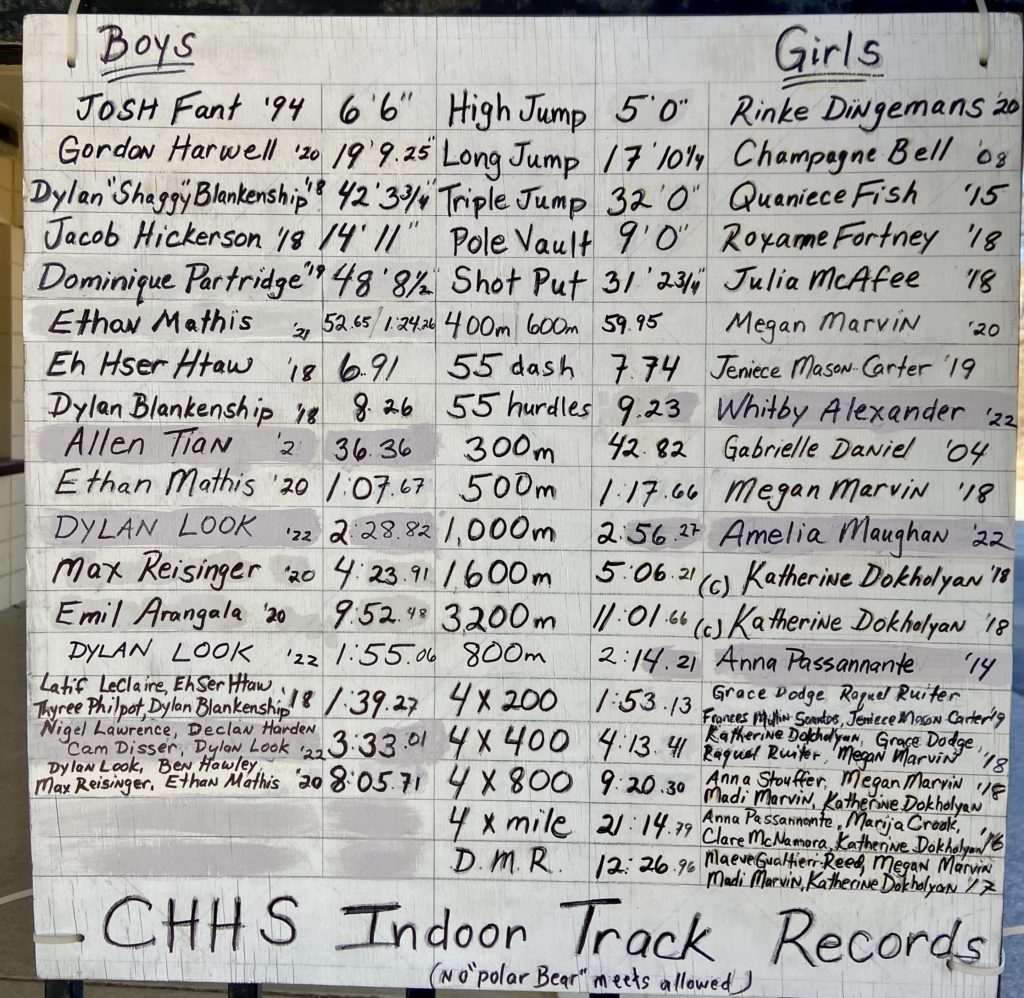 Boys Girls
JOSH Fant '94 6'6" High Jump 5'0" Rinke Dingemans '20
Gordon Harwell '20 19'9.25" Long Jump 17'10¼ Champagne Bell '08
Dylan "Shaggy" Blankenship '18 42'3¾" Triple Jump 32'0" Quaniece Fish '15
Jacob Hickerson '18 14'11" Pole Vault 9'0" Roxanne Fortney '18
Dominique Partridge '19 48'8½ Shot Put 31'2¾" Julia McAfee '18
Ethan Mathis '21 52.65/1:24.26 400m/600m 59.95 Megan Marvin '20
Eh Hser Htaw '18 6.91 55 dash 7.74 Jeniece Mason-Carter '19
Dylan Blankenship '18 8.26 55 hurdles 9.23 Whitby Alexander '22
Allen Tian '2 36.36 300m 42.82 Gabrielle Daniel '04
Ethan Mathis '20 1:07.67 500m 1:17.66 Megan Marvin '18
DYLAN LOOK '22 2:28.82 1,000m 2:56.27 Amelia Maughan '22
Max Reisinger '20 4:23.91 1,600m 5:06.21 (c) Katherine Dokholyan '18
Emil Arangala '20 9:52.48 3200m 11:01.66 (c) Katherine Dokholyan '18
DYLAN LOOK '22 1:55.06 800m 2:14.21 Anna Passannante '14
Latif Leclaire, Eh Ser Htaw
Thyree Philpot, Dylan Blankenship '18 1:39.27 4 x 200 1:53.13 Grace Dodge, Raquel Ruiter
Frances Mullin Jeniece Mason-Carter '19
Nigel Lawrence, Declan Harden
Cam Disser, Dylan Look '22 3:33.01 4 x 400 4:13.41 Katherine Dokholyan, Grace Dodge,
Raquel Ruiter, Megan Marvin '18
Dylan Look, Ben Hawley,
Max Reisinger, Ethan Mathis '20 8:05.71 4 x 800 9:20.30 Anna Stouffer, Megan Marvin '18
Madi Marvin, Katherine Dokholyan
4 x mile 21:14.79 Anna Passannante, Marija Crook,
Clare McNamara, Katherine Dokholyan '16
D.M.R. 12:26.96 Maeve Gualtieri-Reed, Megan Marvin
Madi Marvin, Katherine Dokholyan '17
CHHS Indoor Track Records
(NO "polar Bear" meets allowed)